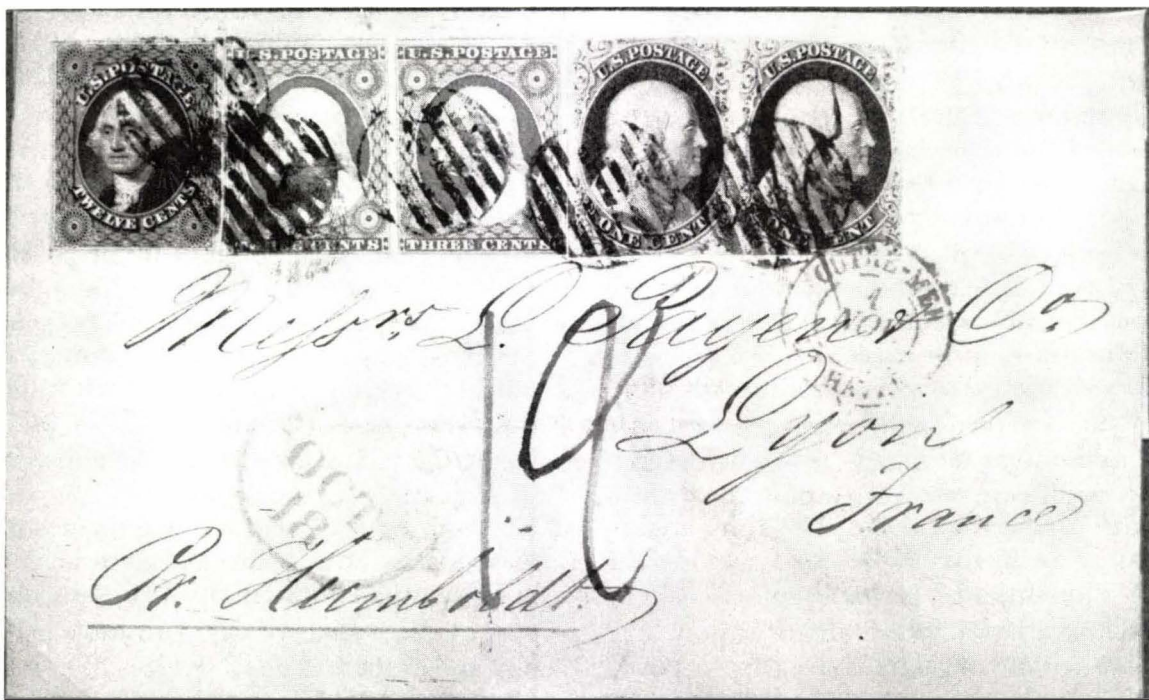 U.S. POSTAGE
TWELVE CENTS
U.S. POSTAGE
CENTS
U.S. POSTAGE
THREE CENTS
U.S. POSTAGE
ONE CENT
U.S. POSTAGE
ONE CENT
OUTRE-MER
NOV
HAV
Messrs. L. Payen & Co
Lyon
France
OCT
18
Pr. Humboldt